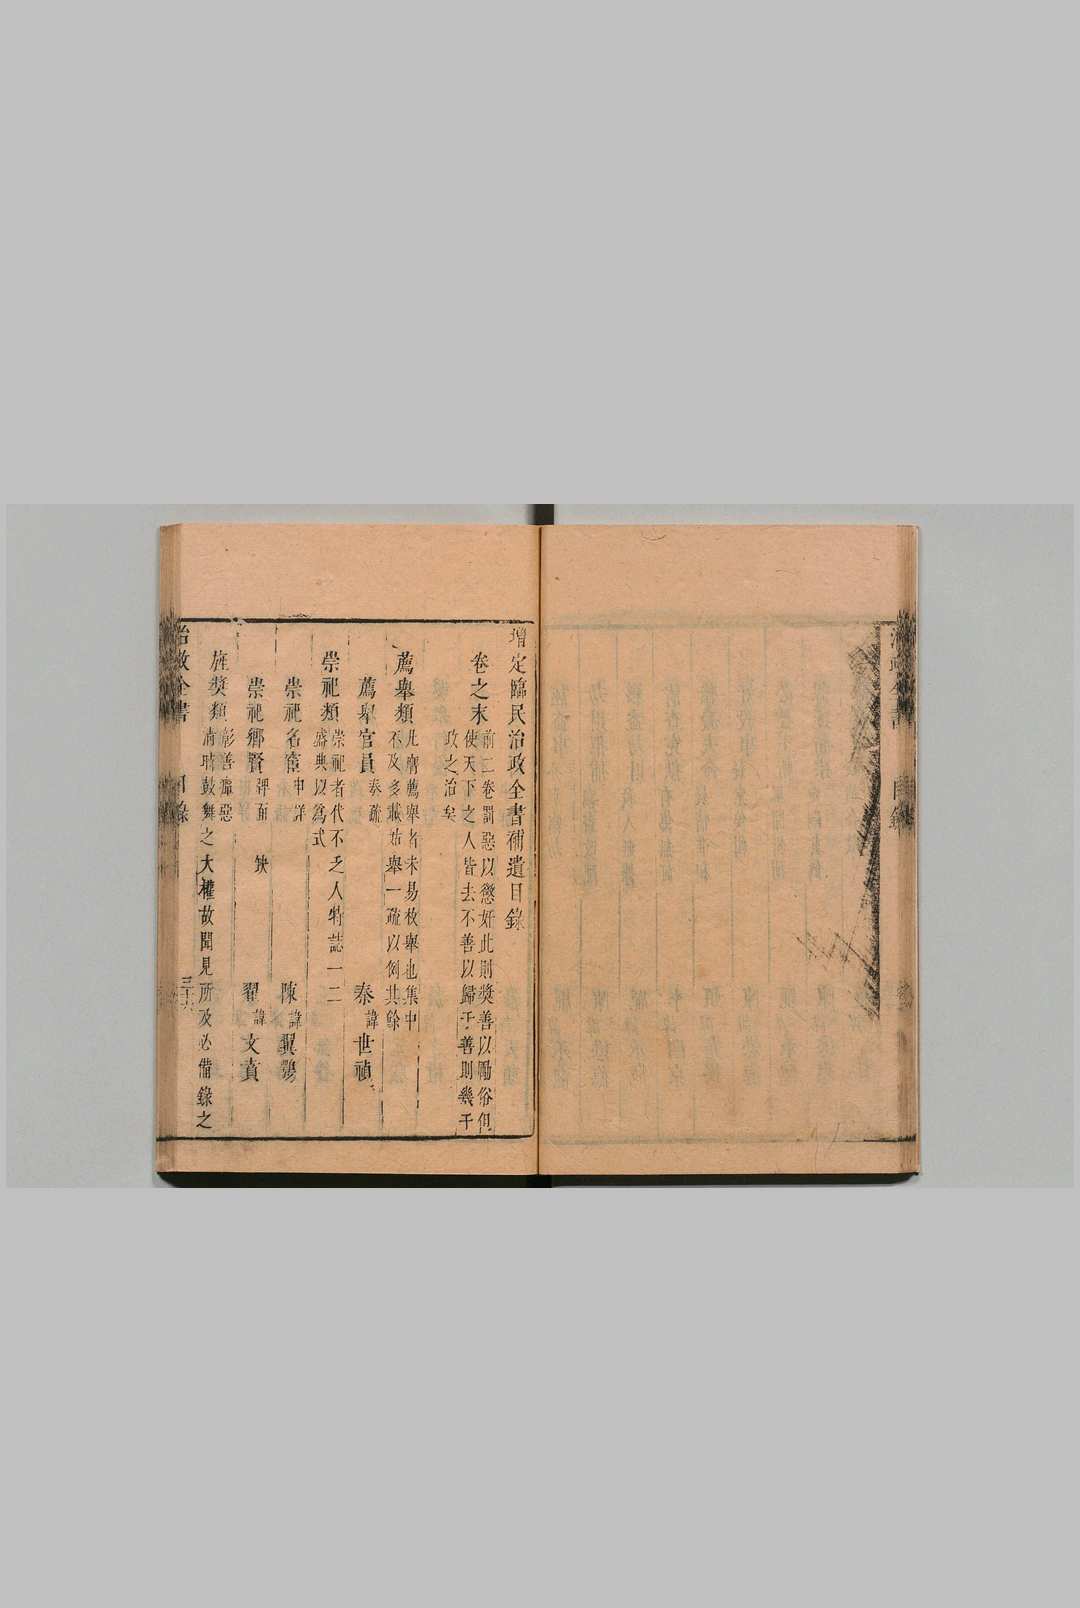 增定臨民治政全書補遺目錄
卷之末
前二卷罰惡以懲奸此則獎善以勵俗但
使天下之人皆去不善以歸于善則幾于
政之治矣
薦舉類
凡膺薦舉者未易枚舉也集中
不及多載始舉一疏以例其餘
薦舉官員 奏疏 秦諱世禎
崇祀類
崇祀者代不乏人特誌一二
盛典以為式
崇祀名宦 申詳 陳諱翼
崇祀鄉賢 詳面 缺 翟諱文賁
旌獎類
彰善癉惡
清時鼓舞之大權故聞見所及必備錄之
治政全書 目錄 三十六